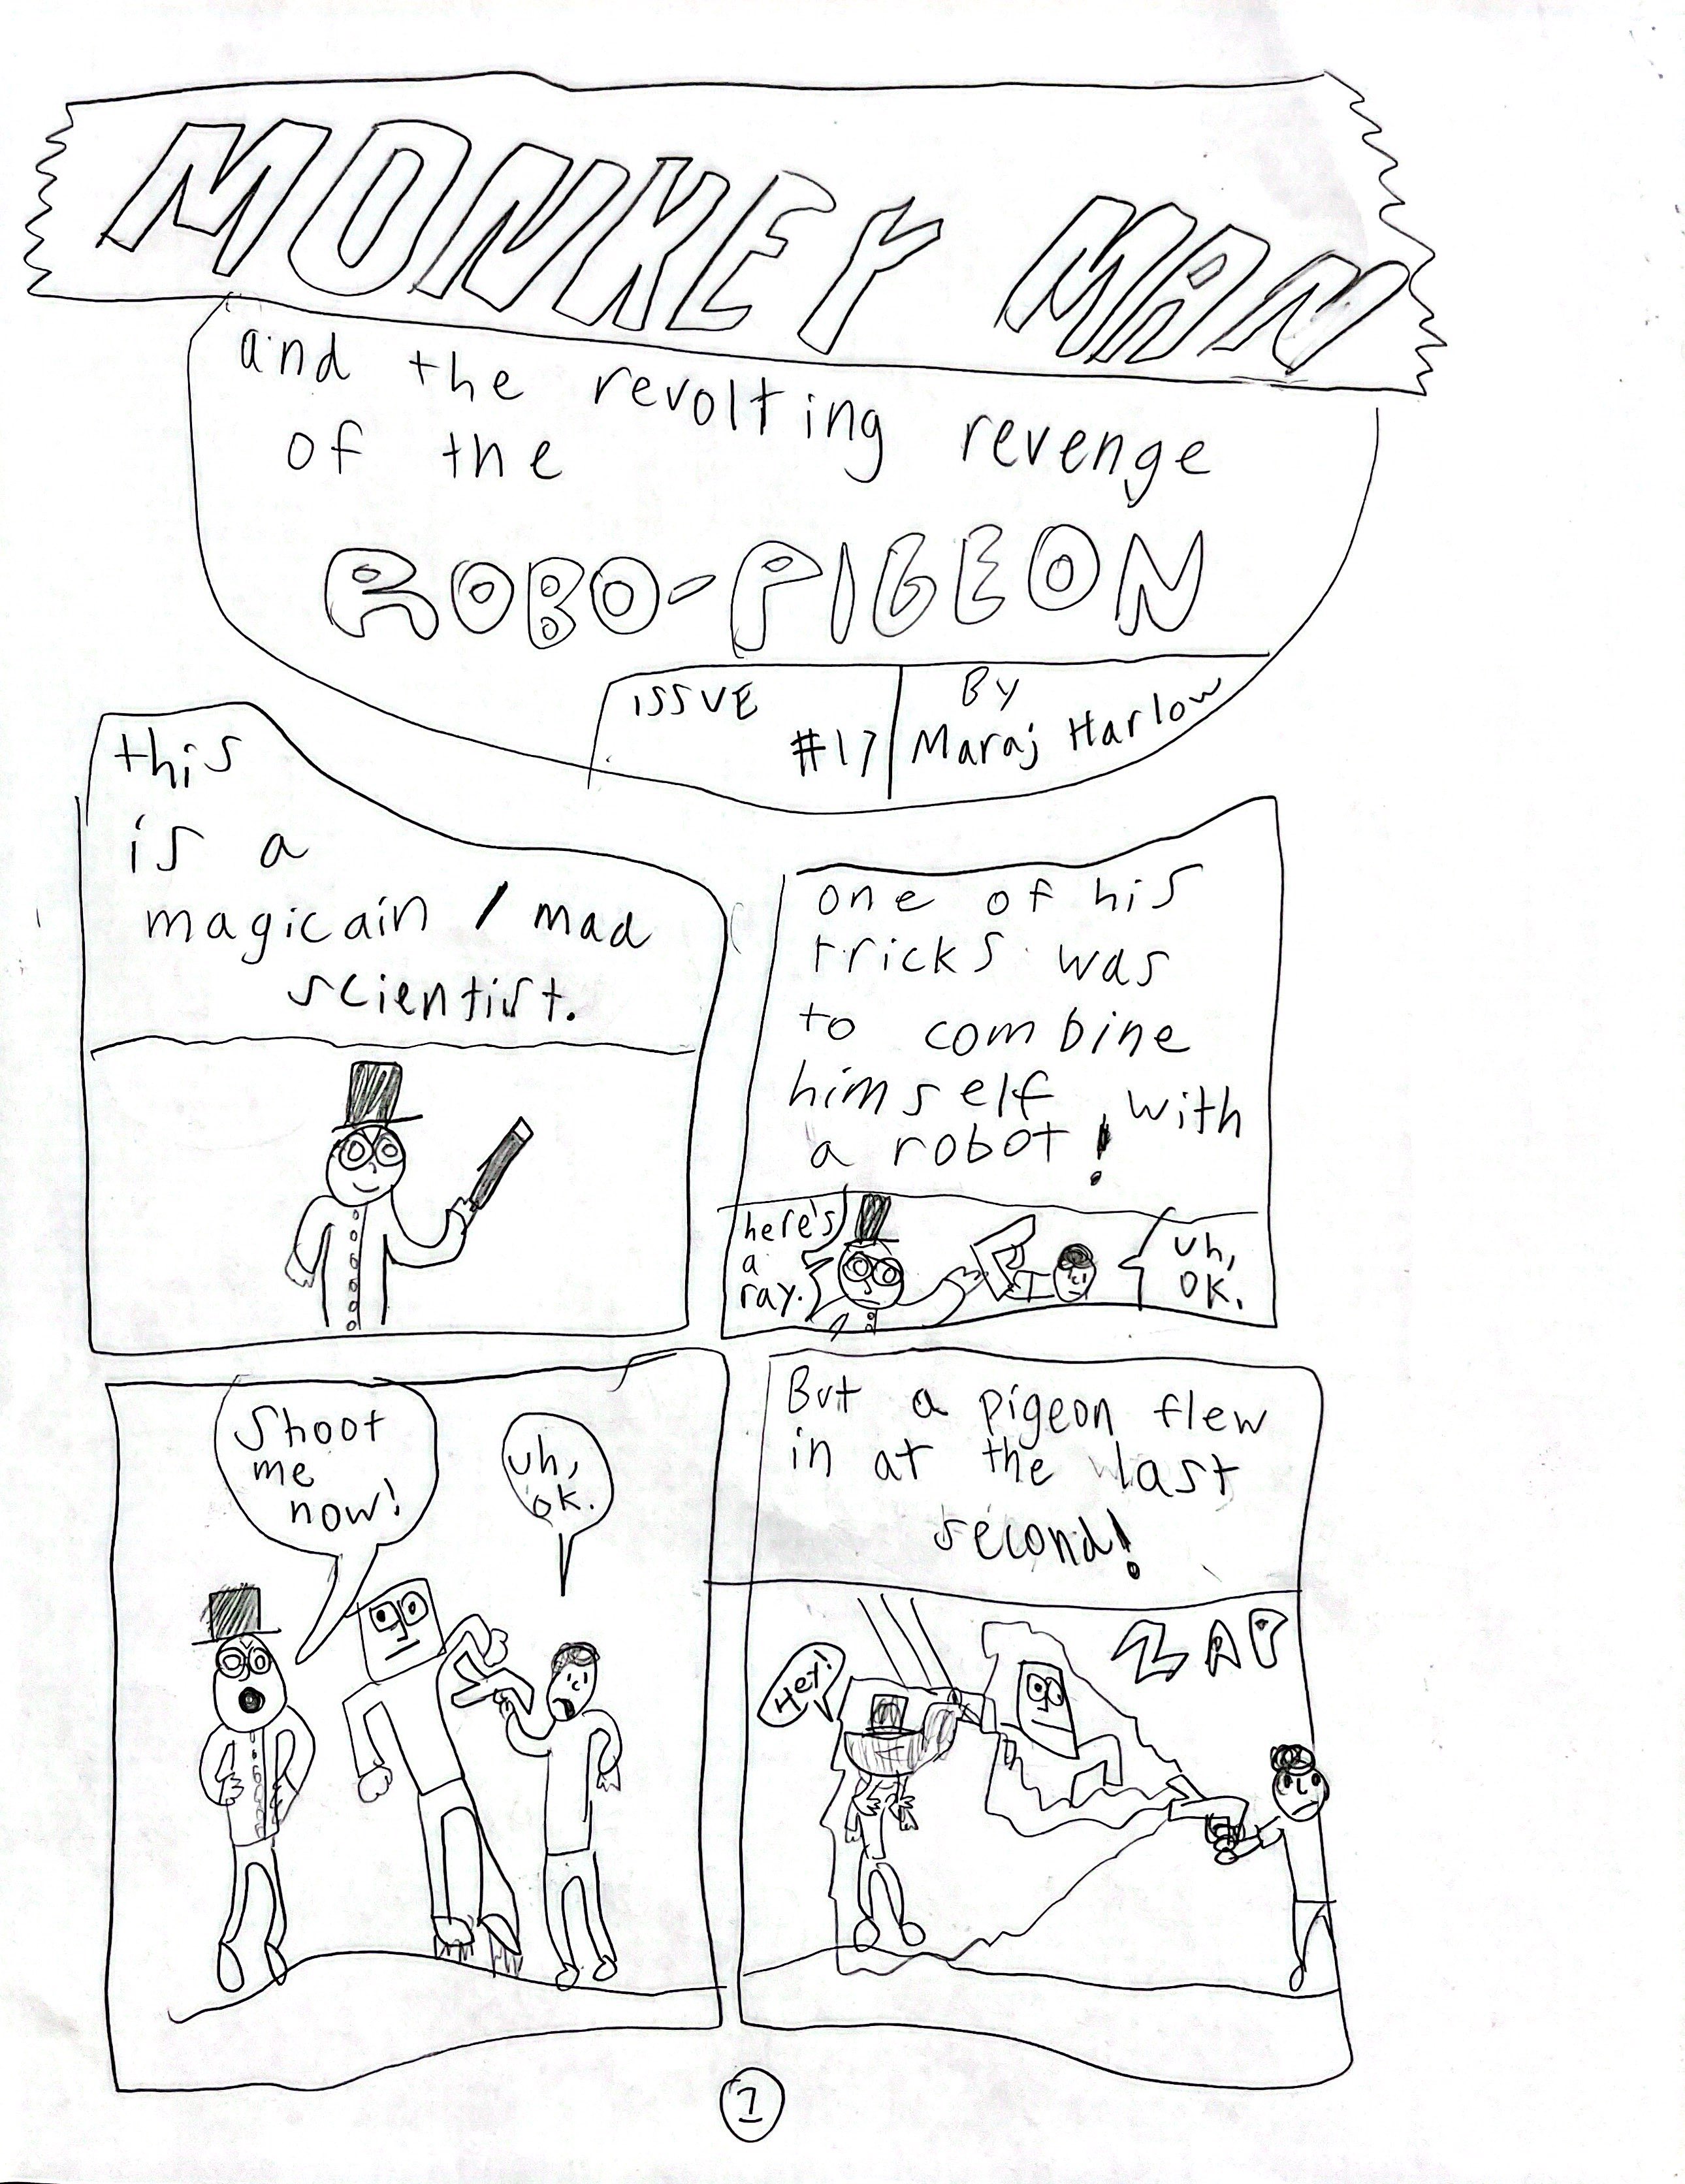 MONKEY MAN
and the revolting revenge
of the
ROBO-PIGEON
ISSUE
#17
By
Maraj Harlow
this
is a
magicain / mad
scientist.
one of his
tricks was
to combine
himself with
a robot!
here's
a
ray.
uh,
OK.
Shoot
me
now!
uh,
ok.
But a pigeon flew
in at the last
second!
ZAP
Hey!
1